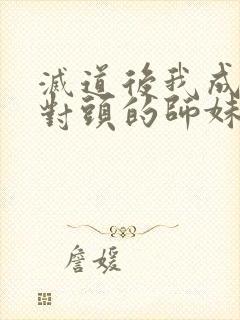 滅道後我成
對頭的師妹
詹媛